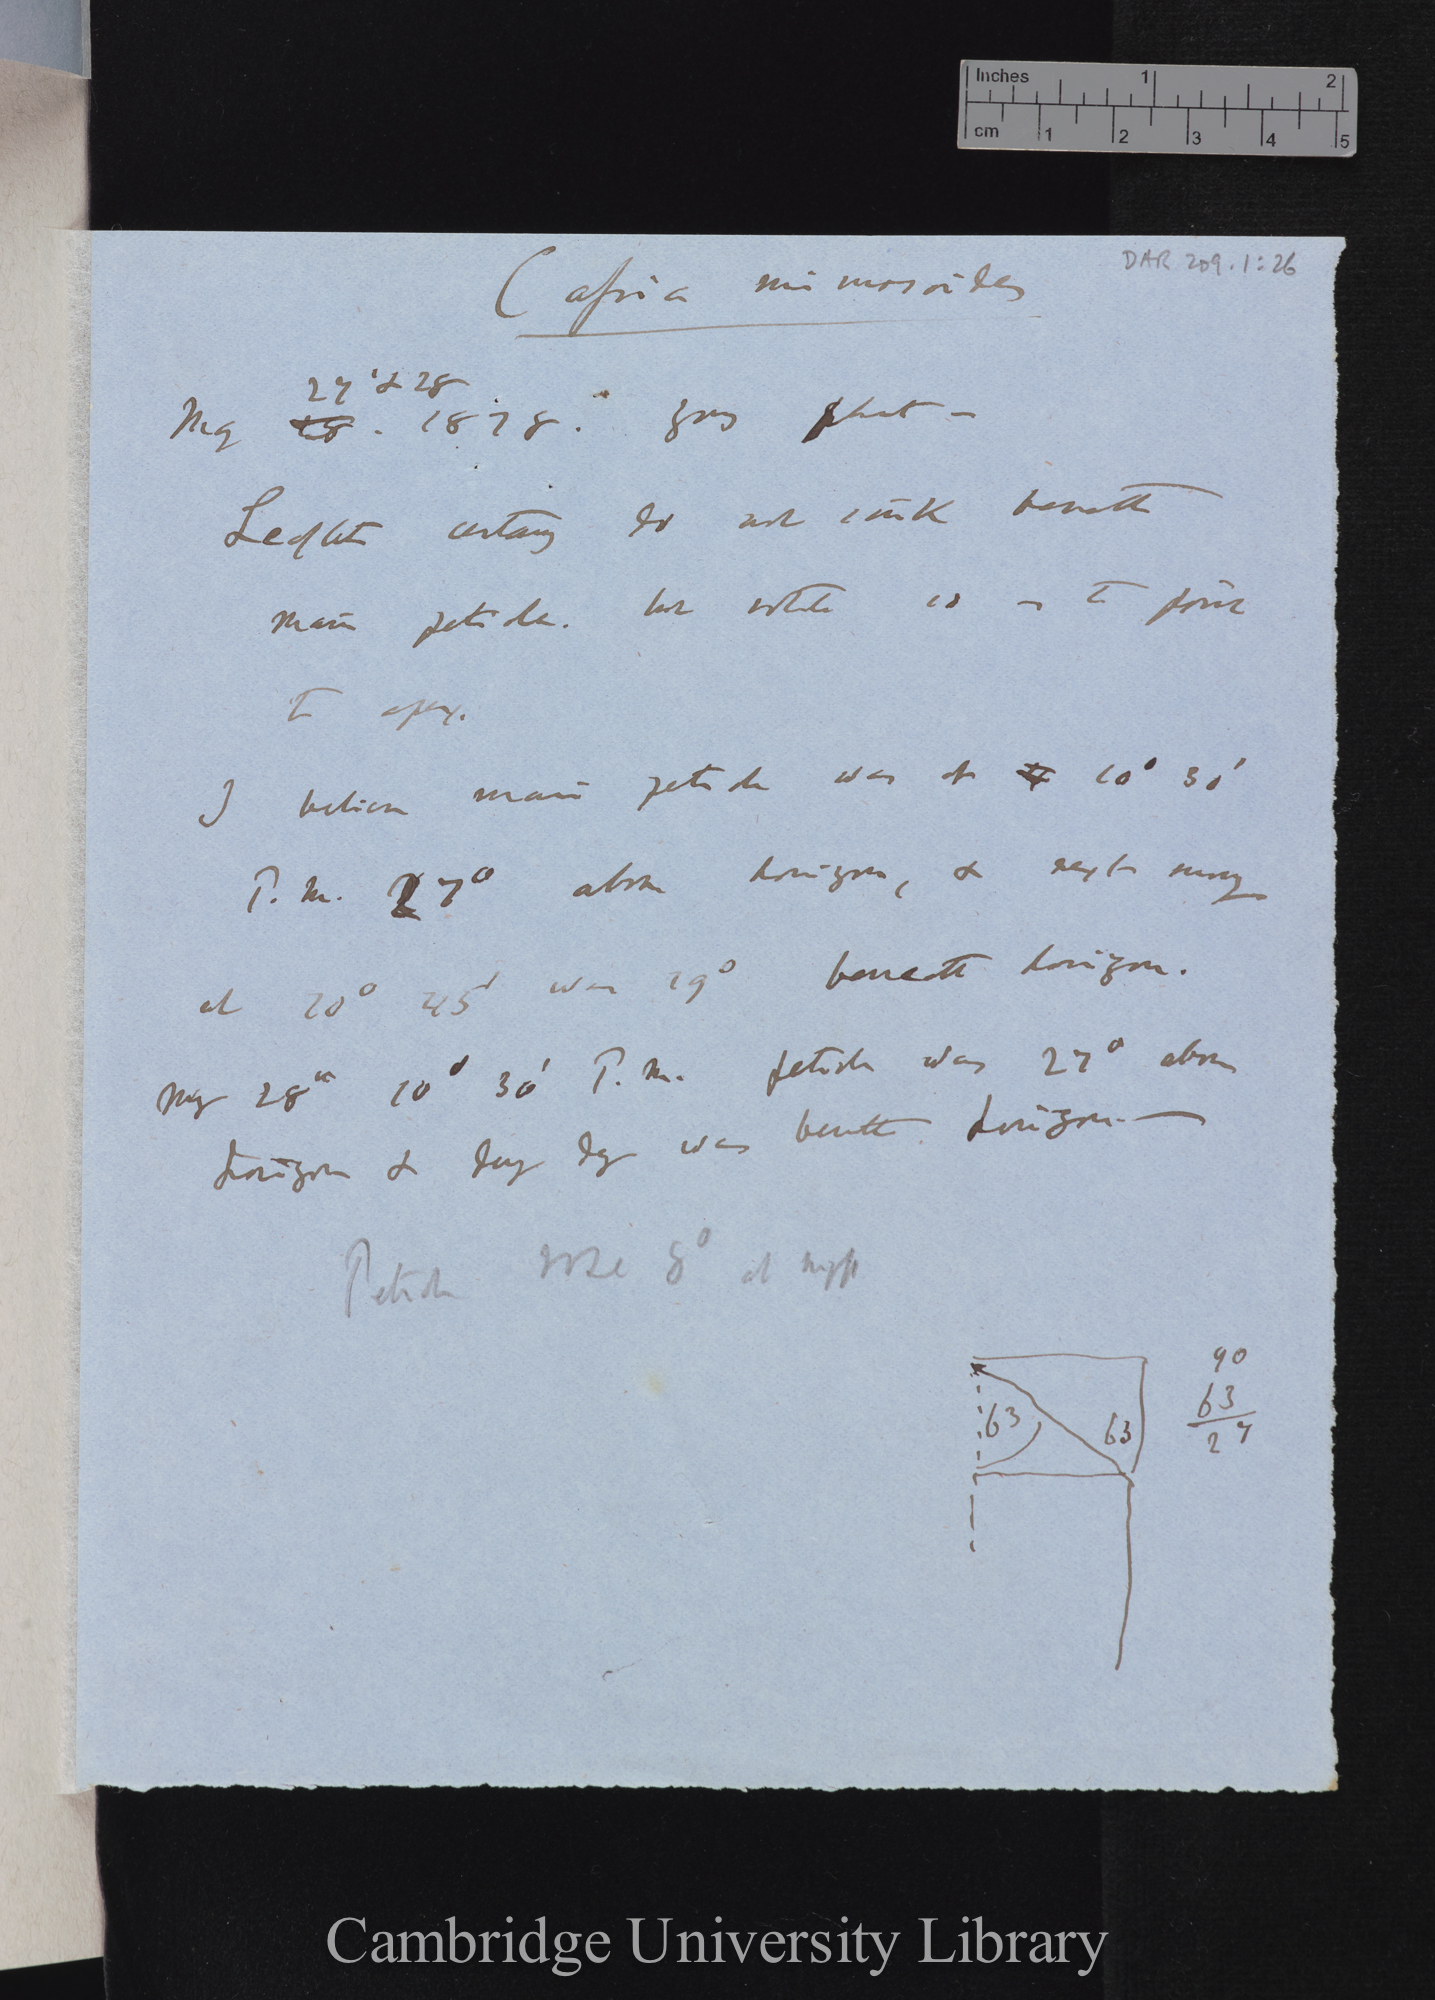 Inches 1 2
cm 1 2 3 4 5
DAR 209.1:26
Cassia mimosoides
27 & 28
May 28. 1878. young plant —
Leaflets certainly do not sink beneath
main petiole. but whole is to point
to apex.
I believe main petiole was at 10° 30'
P.m. 27° above horizon, & next morng
at 10° 45' was 19° beneath horizon.
May 28th 10° 30' P.m. petiole was 27° above
horizon & day was beneath horizon —
Petiole rose 8° at night
63 63
90
63
27
Cambridge University Library